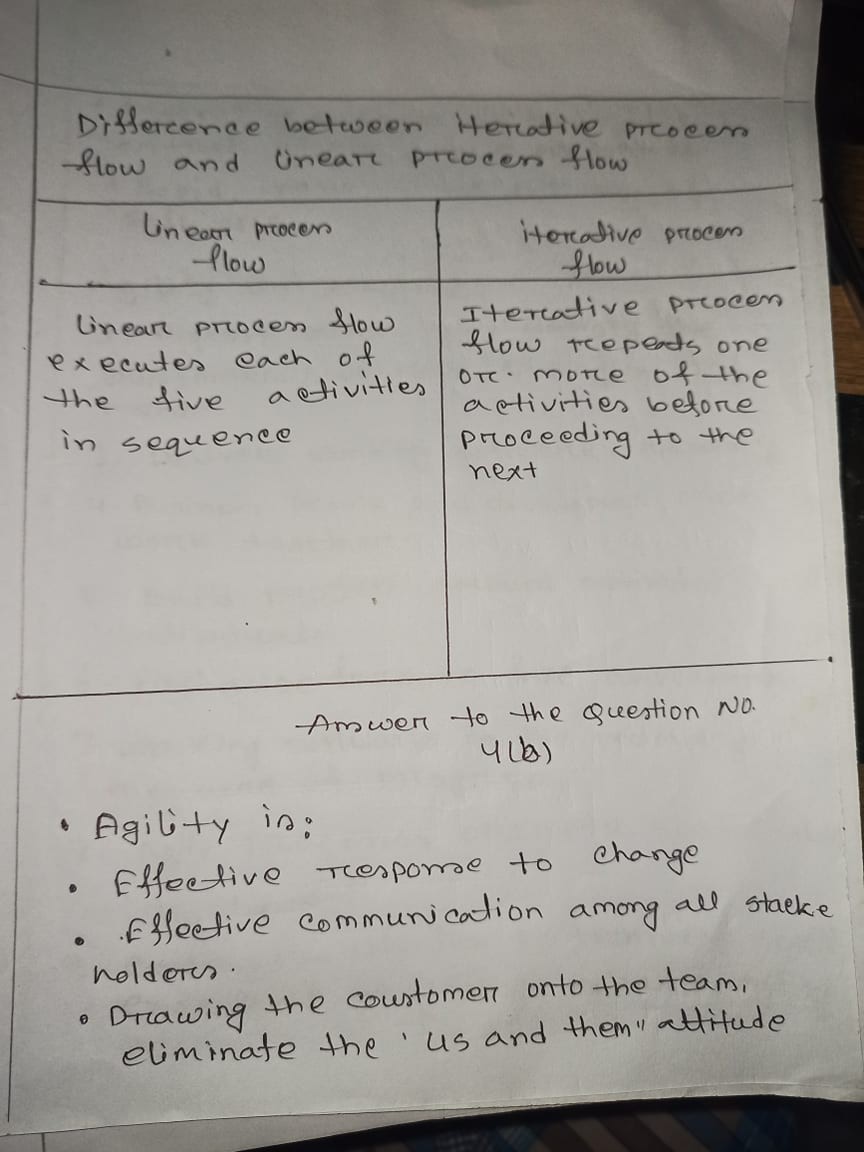 Difference between iterative process
flow and linear process flow
linear process
flow
iterative process
flow
linear process flow
executes each of
the five activities
in sequence
Iterative process
flow repeats one
or more of the
activities before
proceeding to the
next
Answer to the Question No.
4(b)
• Agility is:
• Effective response to change
• Effective communication among all stacke
holders.
• Drawing the coustomer onto the team,
eliminate the 'us and them" attitude